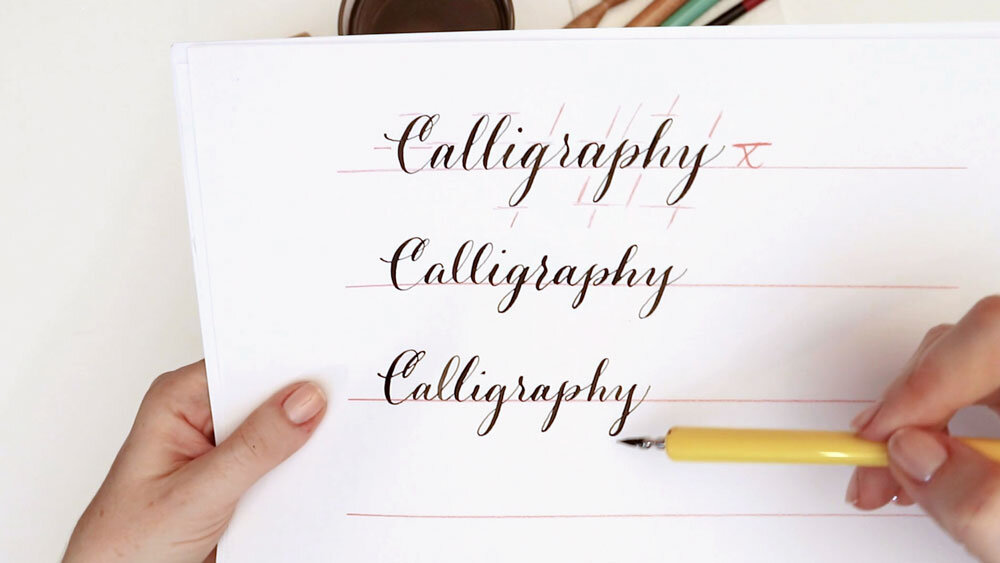 Calligraphy x
Calligraphy
Calligraphy